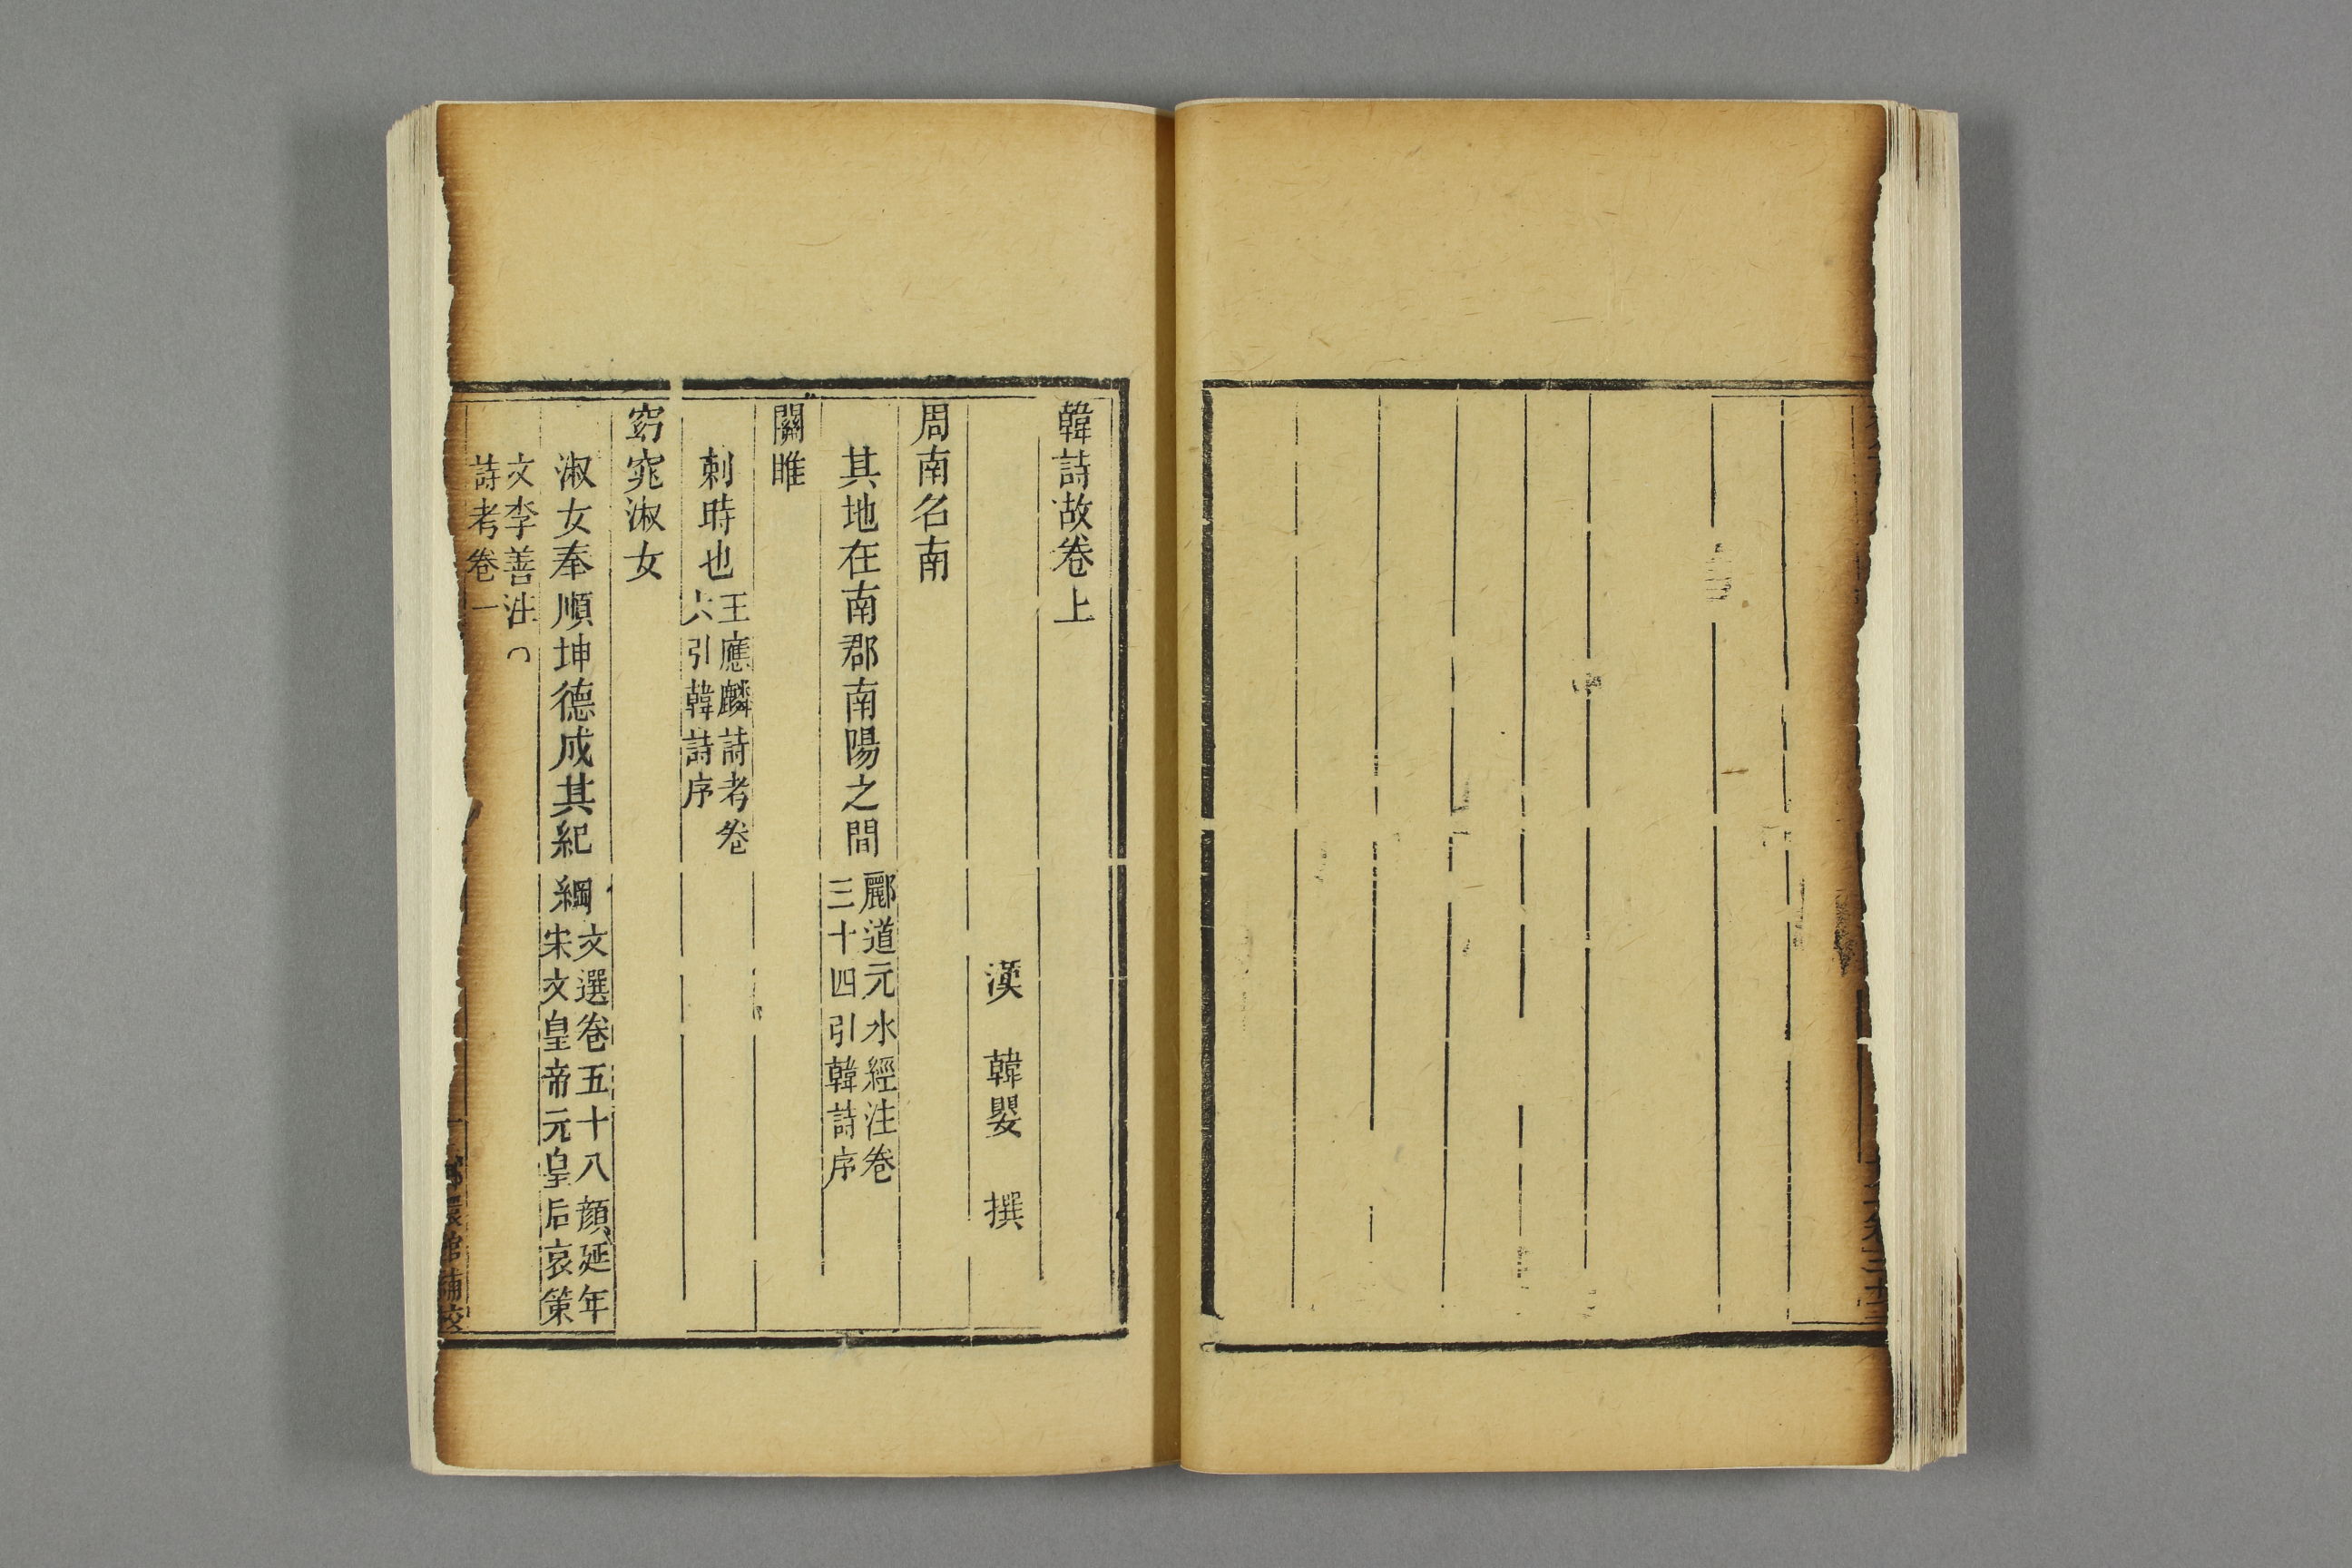 韓詩故卷上
漢 韓嬰 撰
周南名南
其地在南郡南陽之間 酈道元水經注卷
三十四引韓詩序
關雎
刺時也 王應麟詩考卷
六引韓詩序
窈窕淑女
淑女奉順坤德成其紀綱 文選卷五十八顏延年
宋文皇帝元皇后哀策
文李善注
詩考卷一
館補校